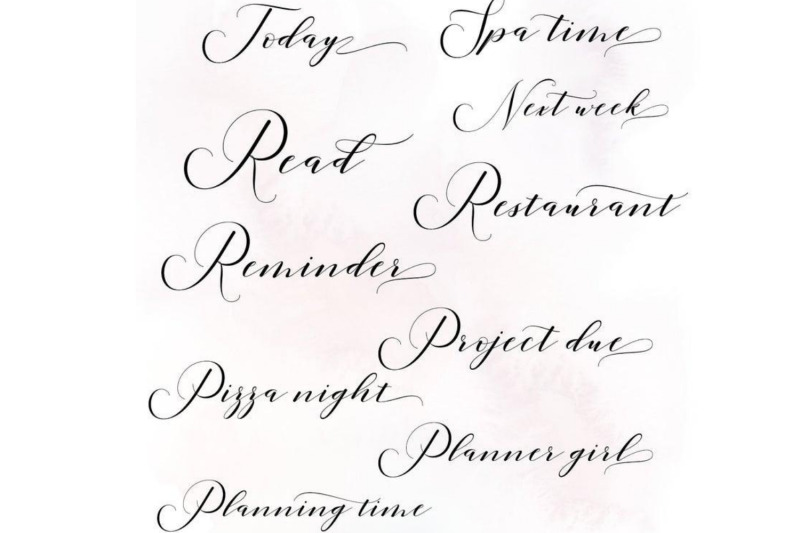 Today
Spa time
Next week
Read
Restaurant
Reminder
Project due
Pizza night
Planner girl
Planning time